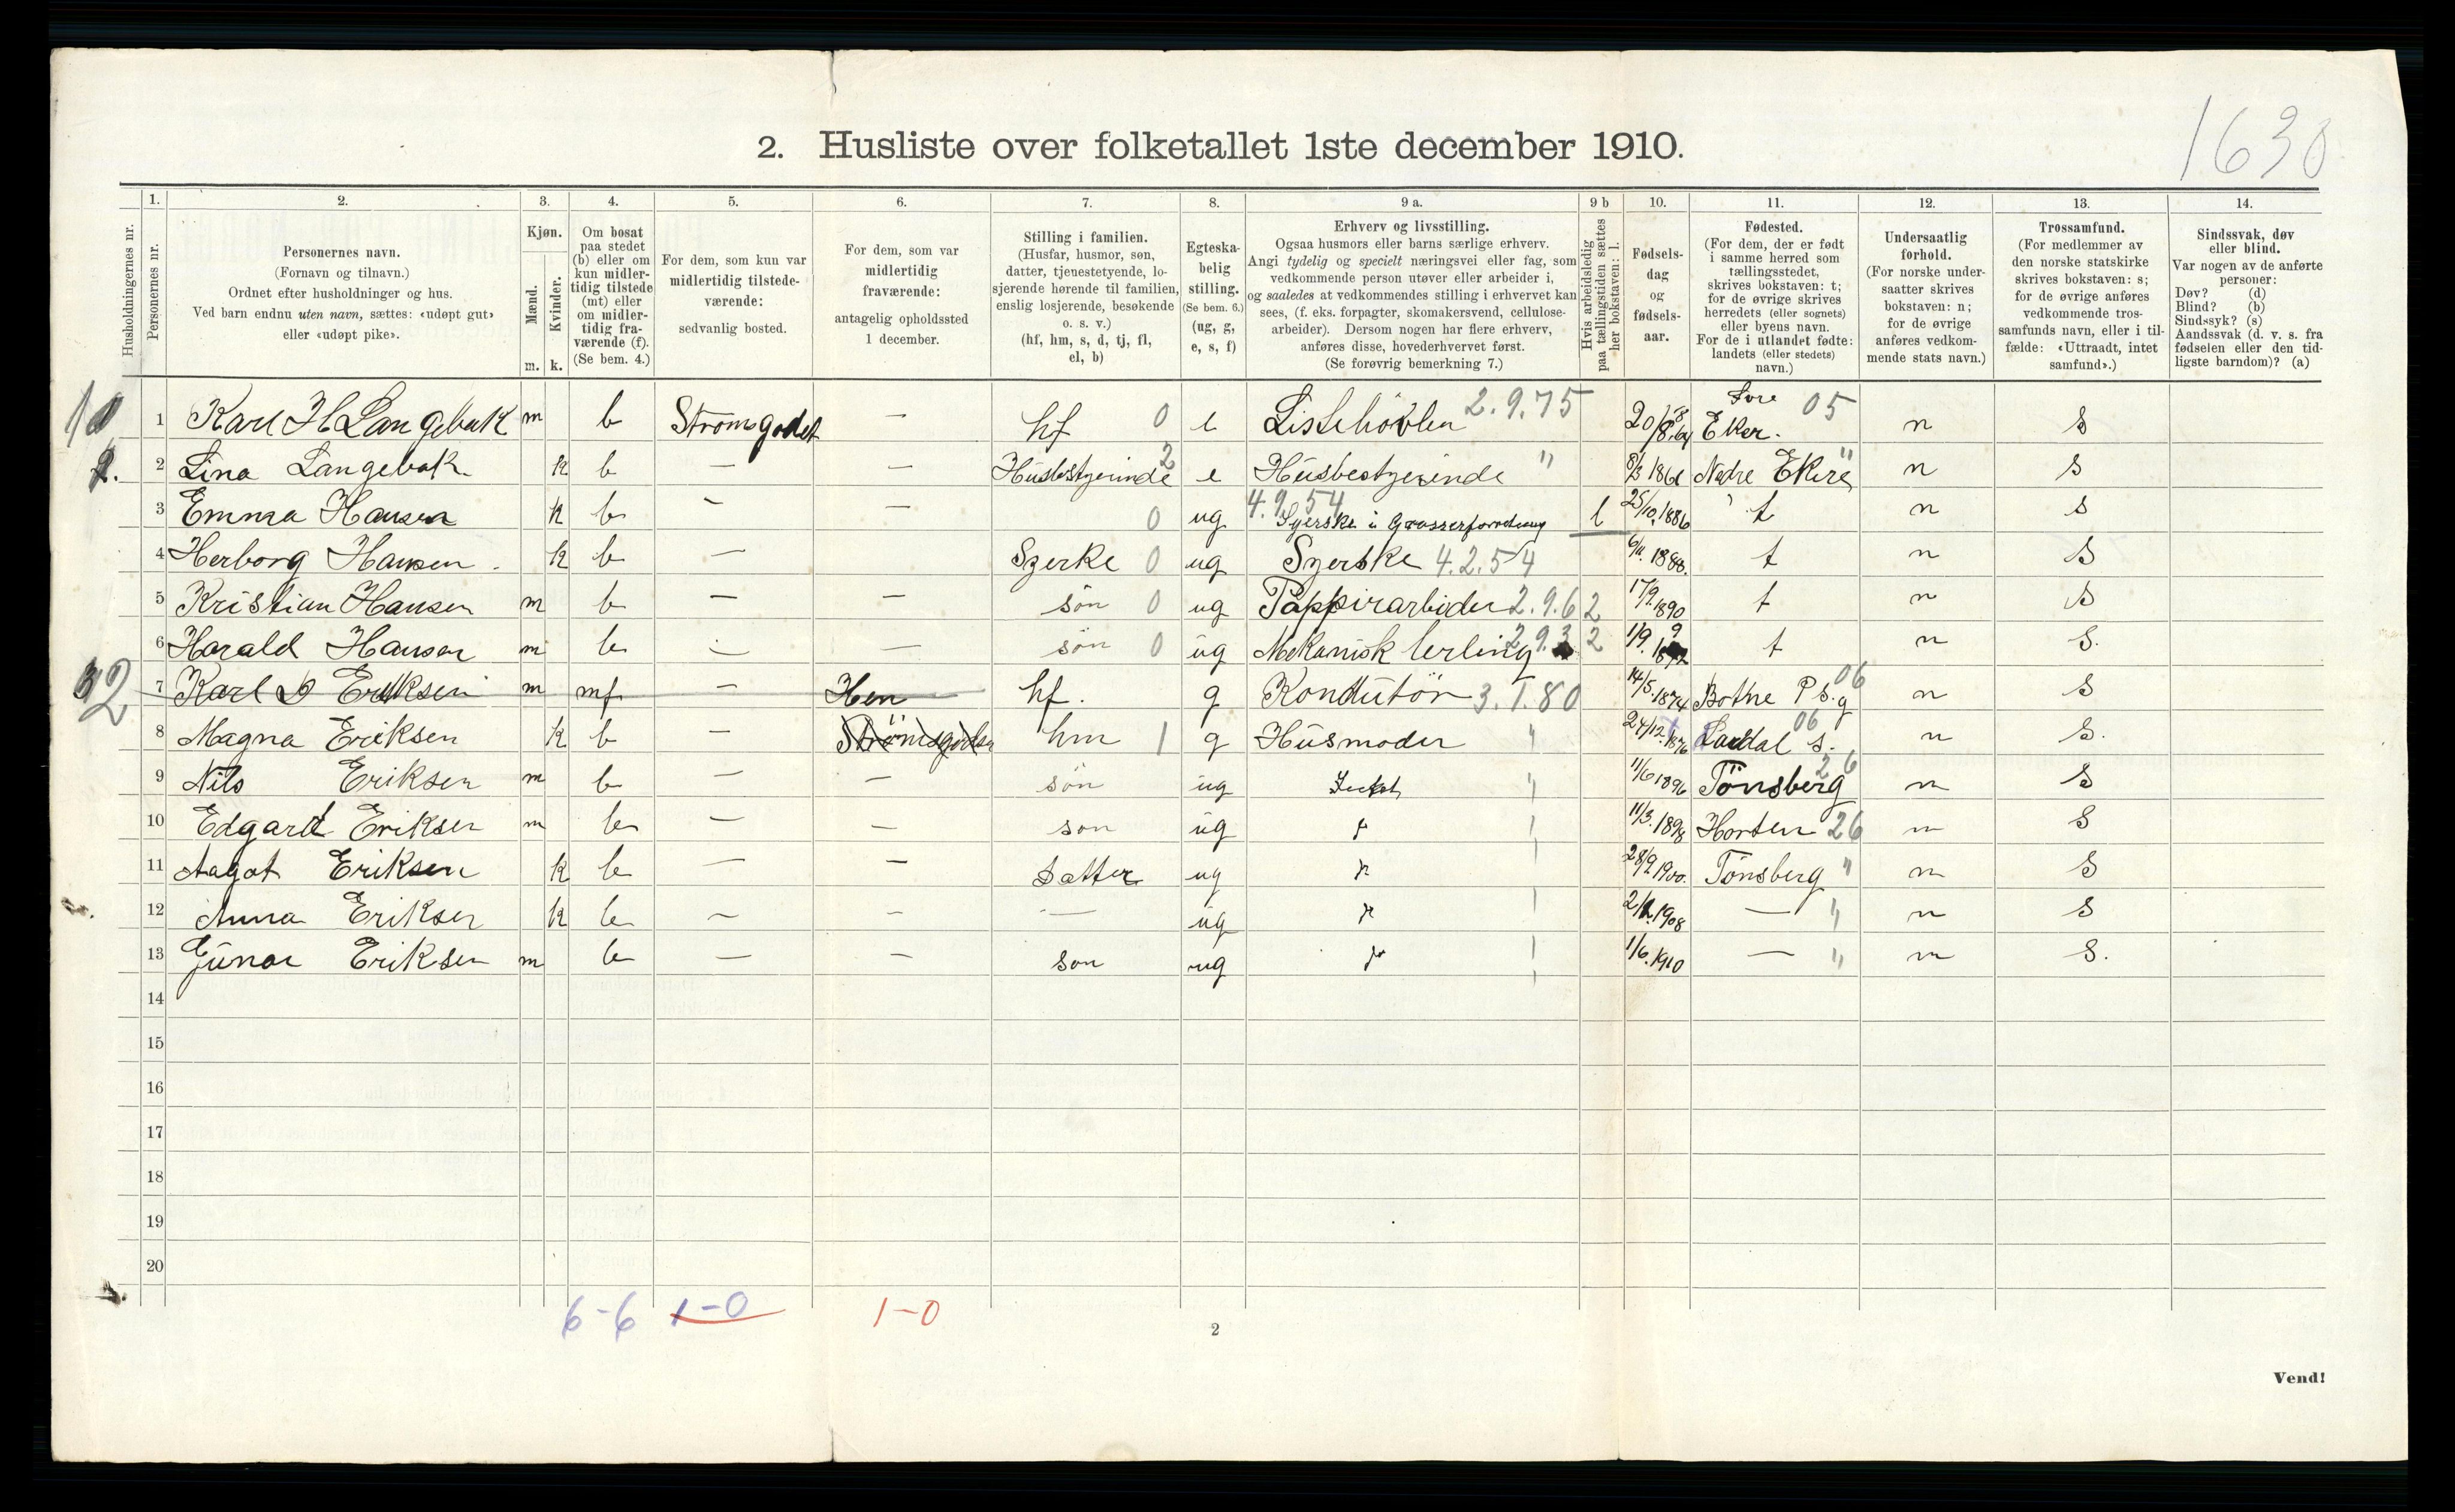 1630
2. Husliste over folketallet 1ste december 1910.
1. 2. 3. 4. 5. 6. 7. 8. 9 a. 9 b 10. 11. 12. 13. 14.
Husholdningernes nr.
Personernes nr.
Personernes navn.
(Fornavn og tilnavn.)
Ordnet efter husholdninger og hus.
Ved barn endnu uten navn, sættes: «udøpt gut»
eller «udøpt pike».
Kjøn.
Mænd.
Kvinder.
m. k.
Om bosat
paa stedet
(b) eller om
kun midler-
tidig tilstede
(mt) eller
om midler-
tidig fra-
værende (f).
(Se bem. 4.)
For dem, som kun var
midlertidig tilstede-
værende:
sedvanlig bosted.
For dem, som var
midlertidig
fraværende:
antagelig opholdssted
1 december.
Stilling i familien.
(Husfar, husmor, søn,
datter, tjenestetyende, lo-
sjerende hørende til familien,
enslig losjerende, besøkende
o. s. v.)
(hf, hm, s, d, tj, fl,
el, b)
Egteska-
belig
stilling.
(Se bem. 6.)
(ug, g,
e, s, f)
Erhverv og livsstilling.
Ogsaa husmors eller barns særlige erhverv.
Angi tydelig og specielt næringsvei eller fag, som
vedkommende person utøver eller arbeider i,
og saaledes at vedkommendes stilling i erhvervet kan
sees, (f. eks. forpagter, skomakersvend, cellulose-
arbeider). Dersom nogen har flere erhverv,
anføres disse, hovederhvervet først.
(Se forøvrig bemerkning 7.)
Hvis arbeidsledig
paa tællingstiden sættes
her bokstaven: l.
Fødsels-
dag
og
fødsels-
aar.
Fødested.
(For dem, der er født
i samme herred som
tællingsstedet,
skrives bokstaven: t;
for de øvrige skrives
herredets (eller sognets)
eller byens navn.
For de i utlandet fødte:
landets (eller stedets)
navn.)
Undersaatlig
forhold.
(For norske under-
saatter skrives
bokstaven: n;
for de øvrige
anføres vedkom-
mende stats navn.)
Trossamfund.
(For medlemmer av
den norske statskirke
skrives bokstaven: s;
for de øvrige anføres
vedkommende tros-
samfunds navn, eller i til-
fælde: «Uttraadt, intet
samfund».)
Sindssvak, døv
eller blind.
Var nogen av de anførte
personer:
Døv? (d)
Blind? (b)
Sindssyk? (s)
Aandssvak (d. v. s. fra
fødselen eller den tid-
ligste barndom)? (a)
1 Karl H Langebak m b Stromsgodet — hf 0 e Listehövlen 2.9.75 Eker. 05 n s
2. 2 Lina Langebak k b — — Husbestyerinde 2 e Husbestyerinde " Nedre Eker n s
3 Emma Hansen k b — — 0 ug 4.9.54 Syerske i l 25/10 1886 t n s
4 Herborg Hansen k b — Syerke 0 ug Syerske 4.2.54 6/11 1888. t n s
5 Kristian Hansen m b — — sön 0 ug Pappirarbider 2.9.62 17/9 1890 t n s
6 Harald Hansen m b — — sön 0 ug Mekanisk lerling 2.9.3 2 1/9. t n s.
2 7 Karl Eriksen m mf — Hen hf. g Kondutör 3.1.80 14/5.1874 Botne P s.g 06 n s
8 Magna Eriksen k b — Strömsgodset hm 1 g Husmoder " 24/12.1876 Lardal s. 06 n s.
9 Nils Eriksen m b — — sön ug " 11/6 1896 Tönsberg 26 n s
10 Edgard Eriksen m b — — son ug 11/3.1898 Horten 26 n s
11 Aagot Eriksen k b — — Datter ug 28/9 1900. Tönsberg " n s
12 Anna Eriksen k b — — — ug — " n s
13 Gunar Eriksen m b — — son ug 1/6.1910 — " n s.
14
15
16
17
18
19
20
6-6 1-0 1-0
2
Vend!